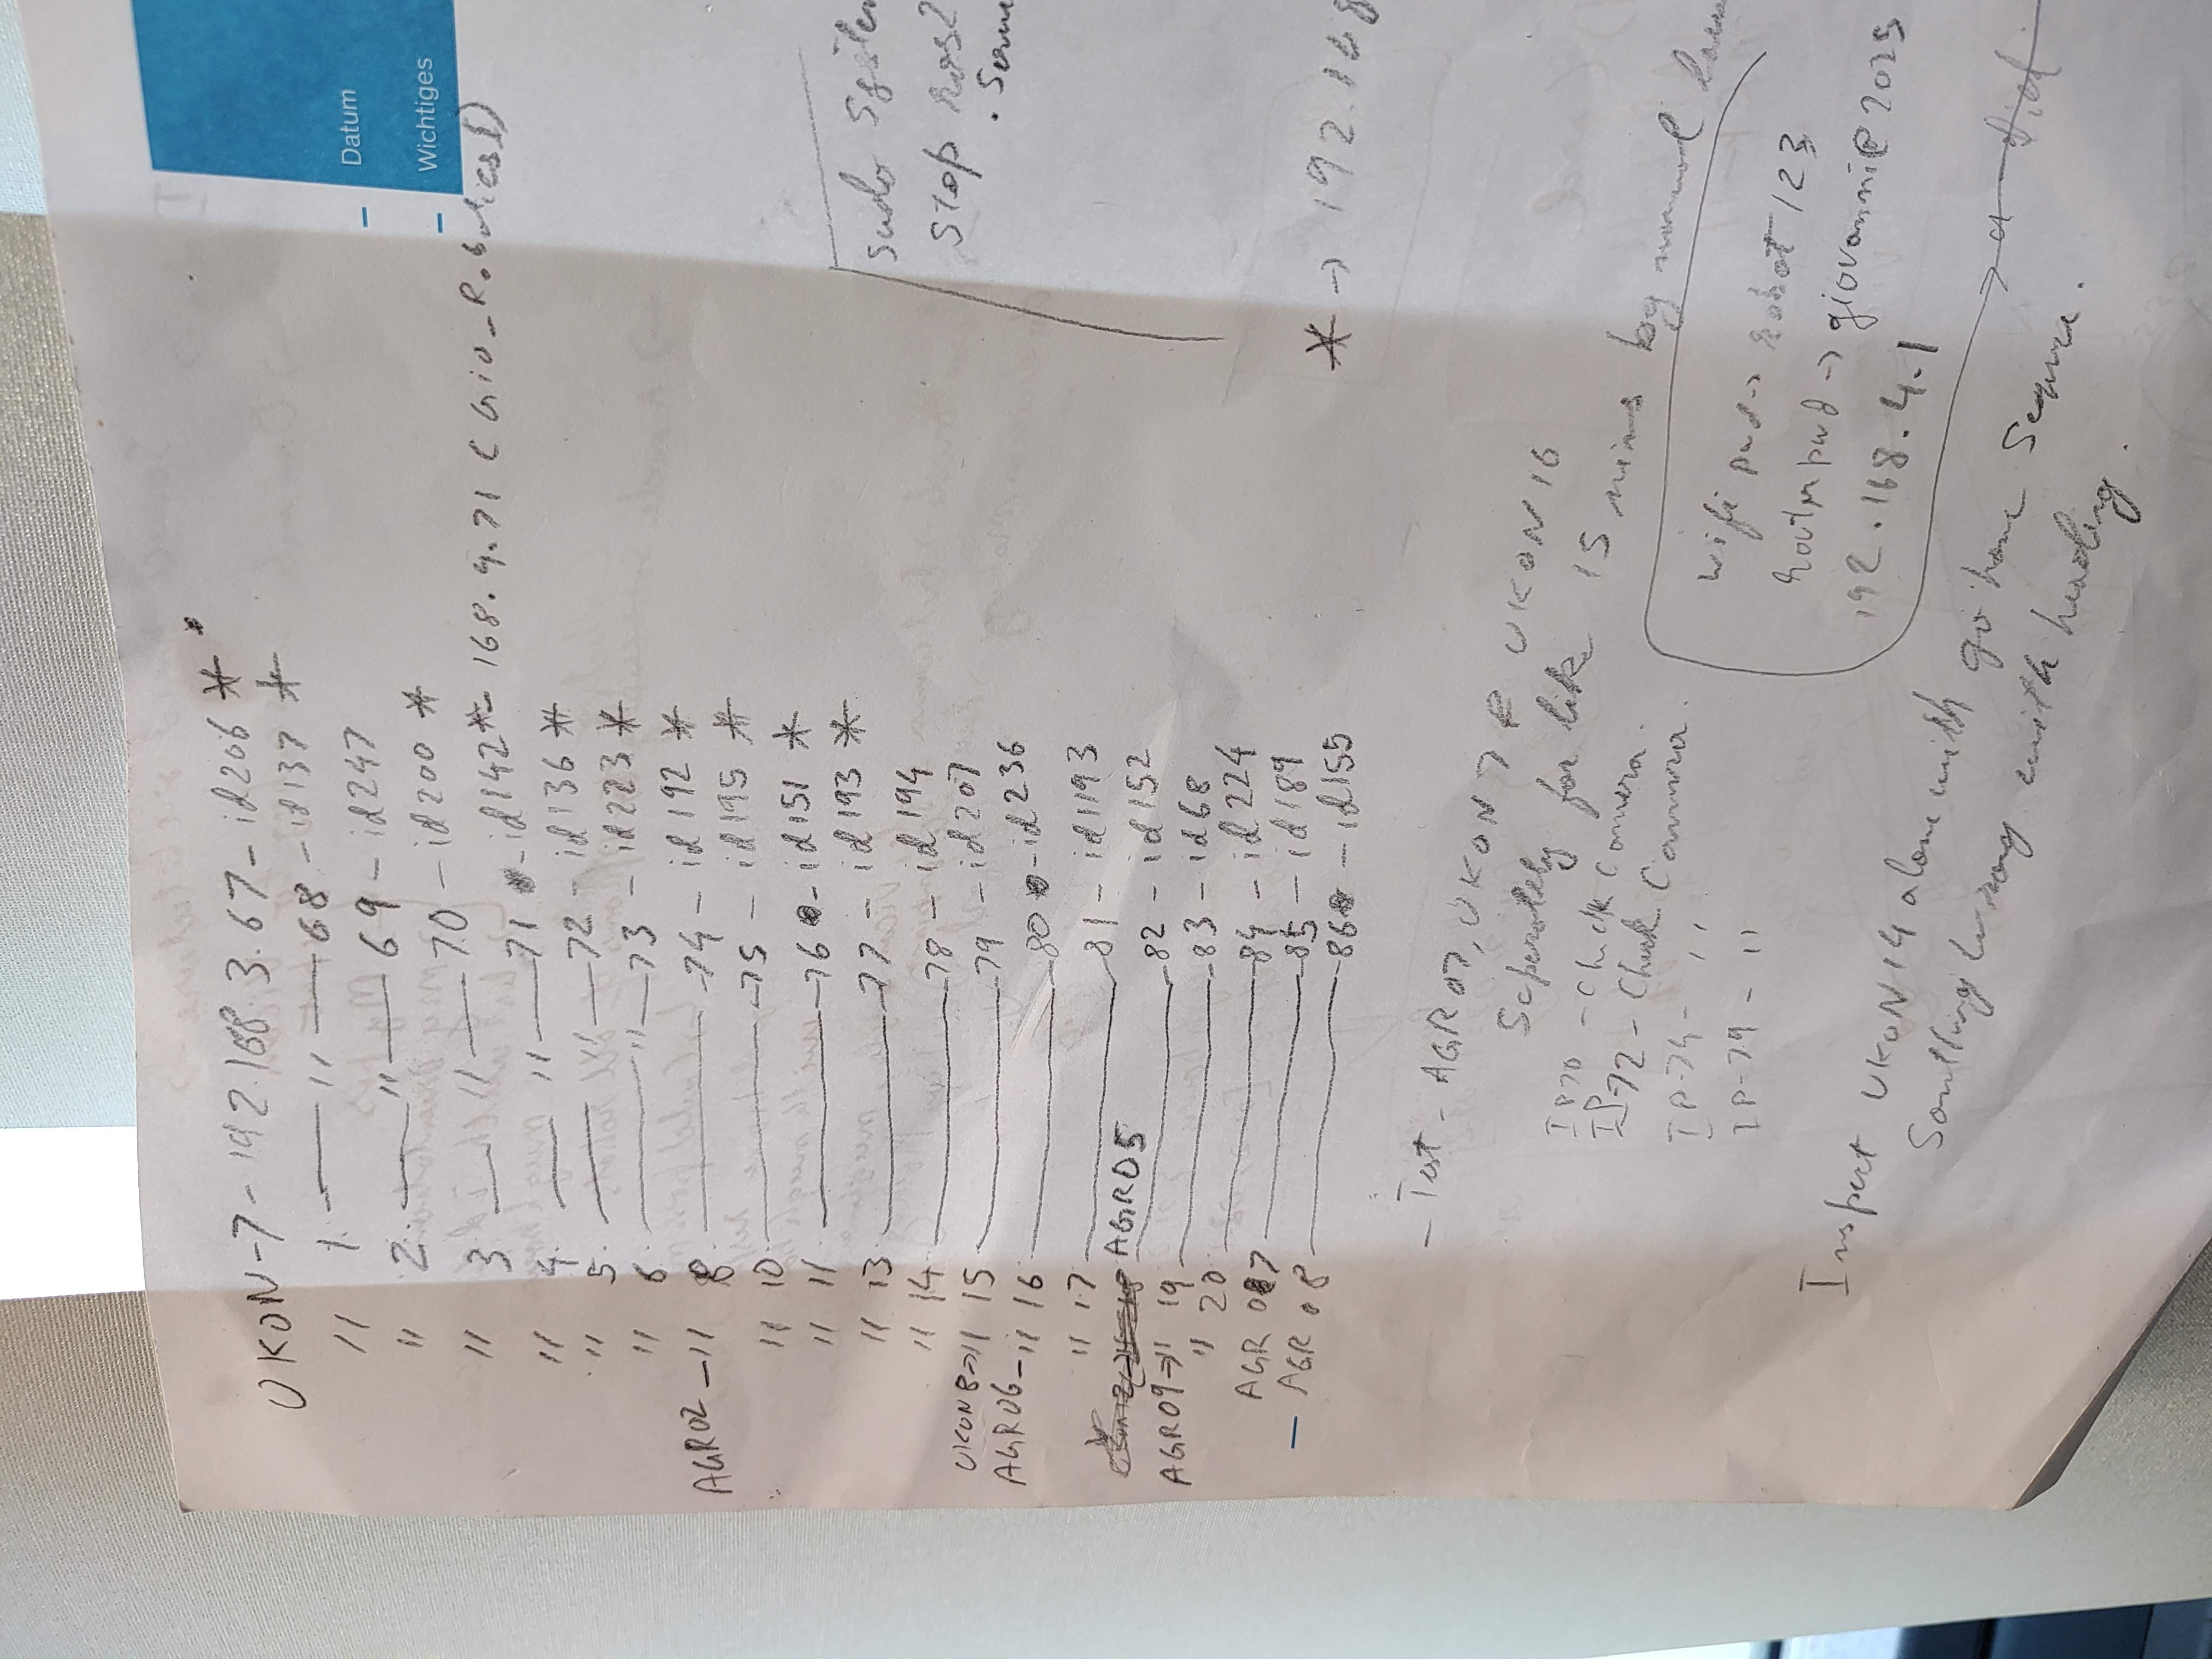 UKON-7 - 192.168.3.67 - id206 *
" 1. — " — 68 - id137 *
" 2. — " — 69 - id247
" 3 — " — 70 - id200 *
" 4. — " — 71 - id142 * - 168.4.71 (Gio_Robotics1)
" 5. — " — 72 - id136 *
" 6 — " — 73 - id223 *
AGR02 - " 8 — 74 - id192 *
" 10 — 75 - id195 *
" 11 — 76 - id151 *
" 13 — 77 - id193 *
" 14 — 78 - id194
UKON8 → " 15 — 79 - id207
AGR06 - " 16 — 80 - id236
" 17 — 81 - id1193
AGR05 — 82 - id152
AGR09 → " 19 — 83 - id68
" 20 — 84 - id224
AGR 07 — 85 - id189
- AGR 08 — 86 - id155
Datum
Wichtiges
sudo
Stop ros2
* → 192.168
- Test - AGR07, UKON7 & UKON16
Seperately for like 15 mins by normal
IP70 - Check Camera.
IP-72 - Check Camera.
IP-74 - "
IP-79 - "
wifi pwd → robot123
router pwd → giovanni@2025
192.168.4.1
Inspect UKON14 alone with go home
wrong with heading.